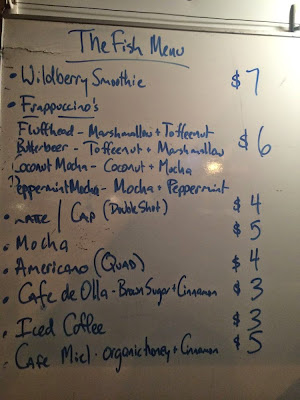 The Fish Menu
• Wildberry Smoothie $7
• Frappuccino's
Fluffhead - Marshmallow + Toffeenut
Butterbeer - Toffeenut + Marshmallow $6
Coconut Mocha - Coconut + Mocha
Peppermint Mocha - Mocha + Peppermint
• Latte / Cap (Double Shot) $4
• Mocha $5
• Americano (Quad) $4
• Cafe de Olla - Brown Sugar + Cinnamon $3
• Iced Coffee $3
• Cafe Miel - organic honey + Cinnamon $5